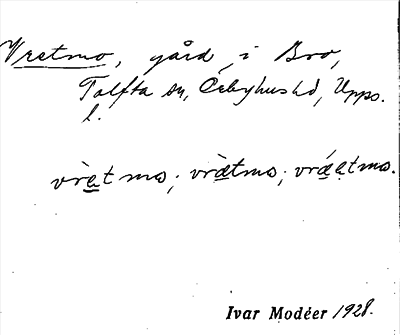 Vretmo, gård i Bro,
Tolfta sn, Örbyhus hd, Upps.
l.
vrètmo; vrætmo; vráetmo.
Ivar Modéer 1928.